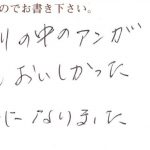 のでお書き下さい。
りの中のアンが
おいしかった
になりました